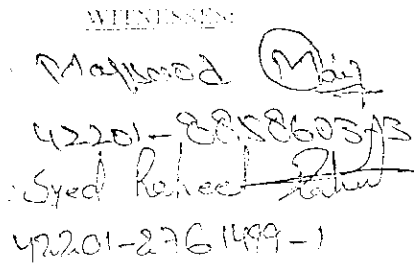 WITNESSES:
Maqsood
42201-8858603-3
Syed Raheel
42201-2761499-1